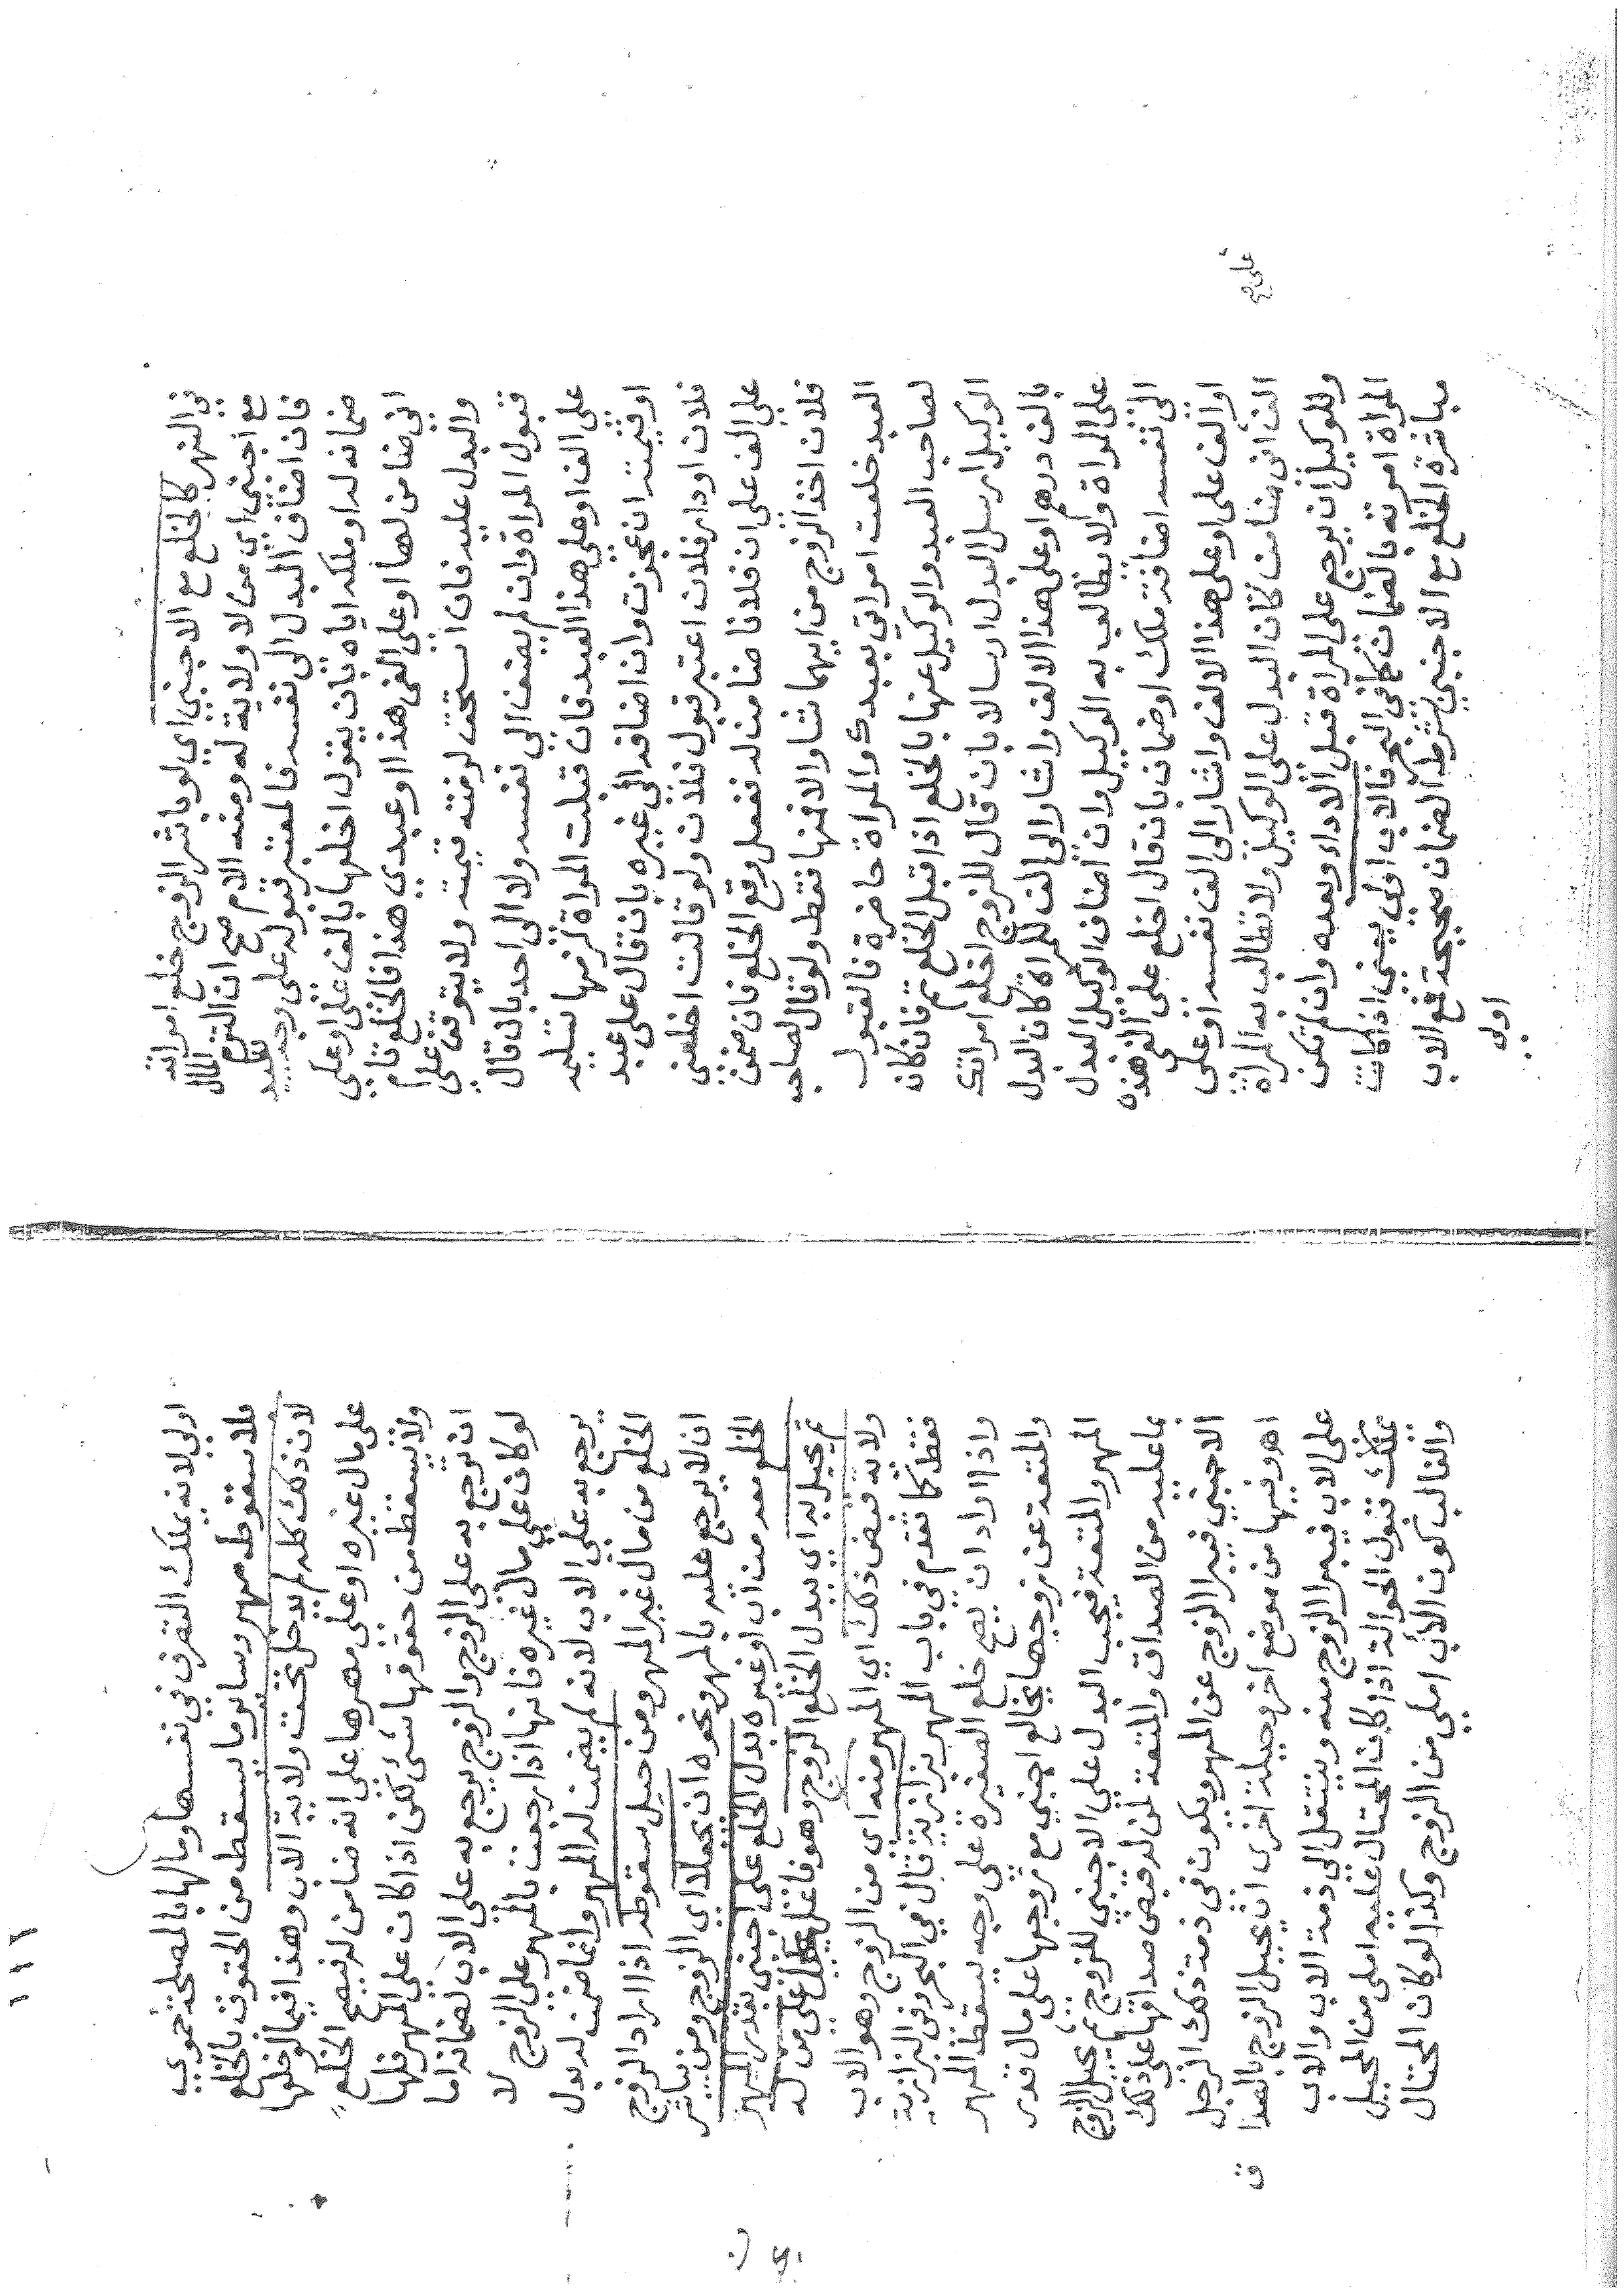 في النهر كالخلع مع الاجنبي اي لو باشر الزوج خلع امراته
مع اجنبي اي من لا ولاية له ومنه الام صح ان التزم المال
فان اضاف البدل الى نفسه فالمعتبر قبوله على وجه يفيد
ضمانه له او ملكه اياه بان يقول اخلعها بالف علي او على
اني ضامن لها او على الفي هذا او عبدي هذا فالخلع تام
والبدل عليه فان استحق لزمته قيمته ولا يتوقف على
قبول المراة وان لم يضف الي نفسه ولا الى احد بان قال
على الف او على هذا العبد فان قبلت المراة لزمها تسليمه
او قيمته ان عجزت وان اضافه الى غيره بان قال على عبد
فلان او دار فلان اعتبر قبول فلان ولو قالت اخلعني
على الف على ان فلانا ضامن له ففعل وقع الخلع فان ضمن
فلان اخذ الزوج من ايهما شا والا فمنها فقط ولو قال لصاحب
العبد خلعت امراتي بعبدك والمراة حاضرة فالقبول
لصاحب العبد والوكيل عنها بالخلع اذا قبل الخلع تم فان كان
الوكيل ارسل البدل ارسالا بان قال للزوج اخلع امراتك
بالف درهم او على هذا الالف واشار الى الف للمراة كان البدل
على المراة ولا يطالب به الوكيل وان اضاف الوكيل البدل
الى نفسه اضافة ملك او ضمان بان قال اخلع على الفي هذه
او الف علي او على هذا الالف واشار الى الف نفسه او على
الف اني ضامن كان البدل على الوكيل ولا تطالب به المراة
وللوكيل ان يرجع على المراة قبل الاداء وبعده وان لم تكن
المراة امرته بالضمان كما في البحر فالاب اولى يعني اذا كانت
مباشرة الخلع مع الاجنبي بشرط الضمان صحيحة فمع الاب
اولى
اولى لانه يملك التصرف في نفسها ومالها بالمصلحة حموي
بلا سقوط مهر وسائر ما يسقط من الحقوق بالخلع
لان ذلك كله لم يدخل تحت ولاية الاب وهذا فيما لو خلعها
على مال غيره او على مهرها على انه ضامن له فيصح الخلع
ولا يسقط من حقوقها شئ لكن اذا كان على المهر فلها
ان ترجع به على الزوج والزوج يرجع به على الاب لضمانه اما
لو كان علي مال غيره فانها اذا رجعت بالمهر على الزوج لا
يرجع به علي الاب لانه لم يضمن له المهر وانما ضمن له بدل
الخلع من مال غير المهر ومن حيل سقوطه اذا اراد الزوج
ان لا يرجع عليه بالمهر ونحوه ان يجعلا اي الزوج ومن يباشر
الخلع معه من اب او غيره بدل الخلع على اجنبي بقدر المهر
ثم يحيل به اي ببدل الخلع الزوج وهو فاعل يحيل على من له
ولاية قبض ذلك اي المهر منه اى من الزوج وهو الاب
فقط كما تقدم في باب المهر بزازية قال في البحر وفى البزازية
واذا اراد ان يصح خلع الصغيرة على وجه يسقط المهر
والمتعة عن زوجها يخالع اجنبي مع زوجها على مال قدر
المهر والمتعة فيجب البدل علي الاجنبي للزوج ثم يحيل الزوج
بما عليه من الصداق والمتعة لمن له قبض صداقها على ذلك
الاجنبي فيبرا الزوج عن المهر ويكون فى ذمة ذلك الرجل
اهـ وفيها من موضع اخر وحيلة اخرى ان يحيل الزوج بالصدا
على الاب فيبرا الزوج منه وينتقل الى ذمة الاب والاب
يملك قبول الحوالة اذا كان المحتال عليه املى من المحيل
والغالب كون الاب املي من الزوج وكذا لو كان المحتال